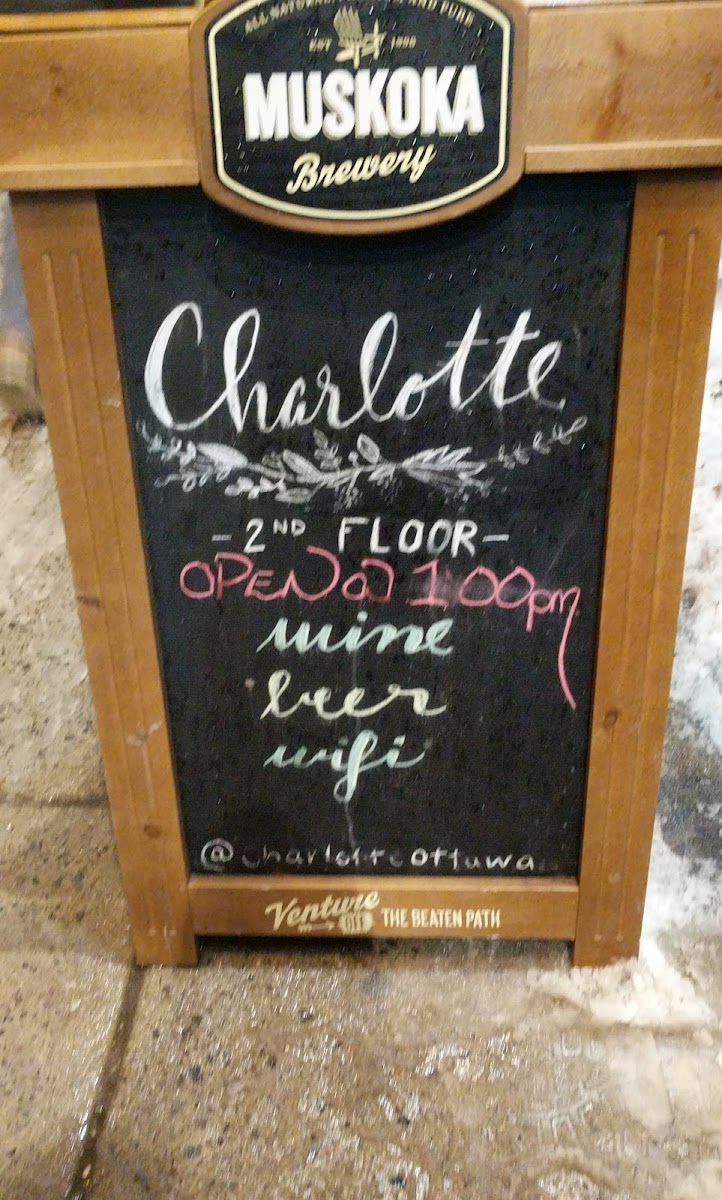 EST 1996
MUSKOKA
Brewery
Charlotte
- 2ND FLOOR -
OPEN @ 1:00pm
wine
beer
wifi
@charlotteottawa
Venture OFF THE BEATEN PATH